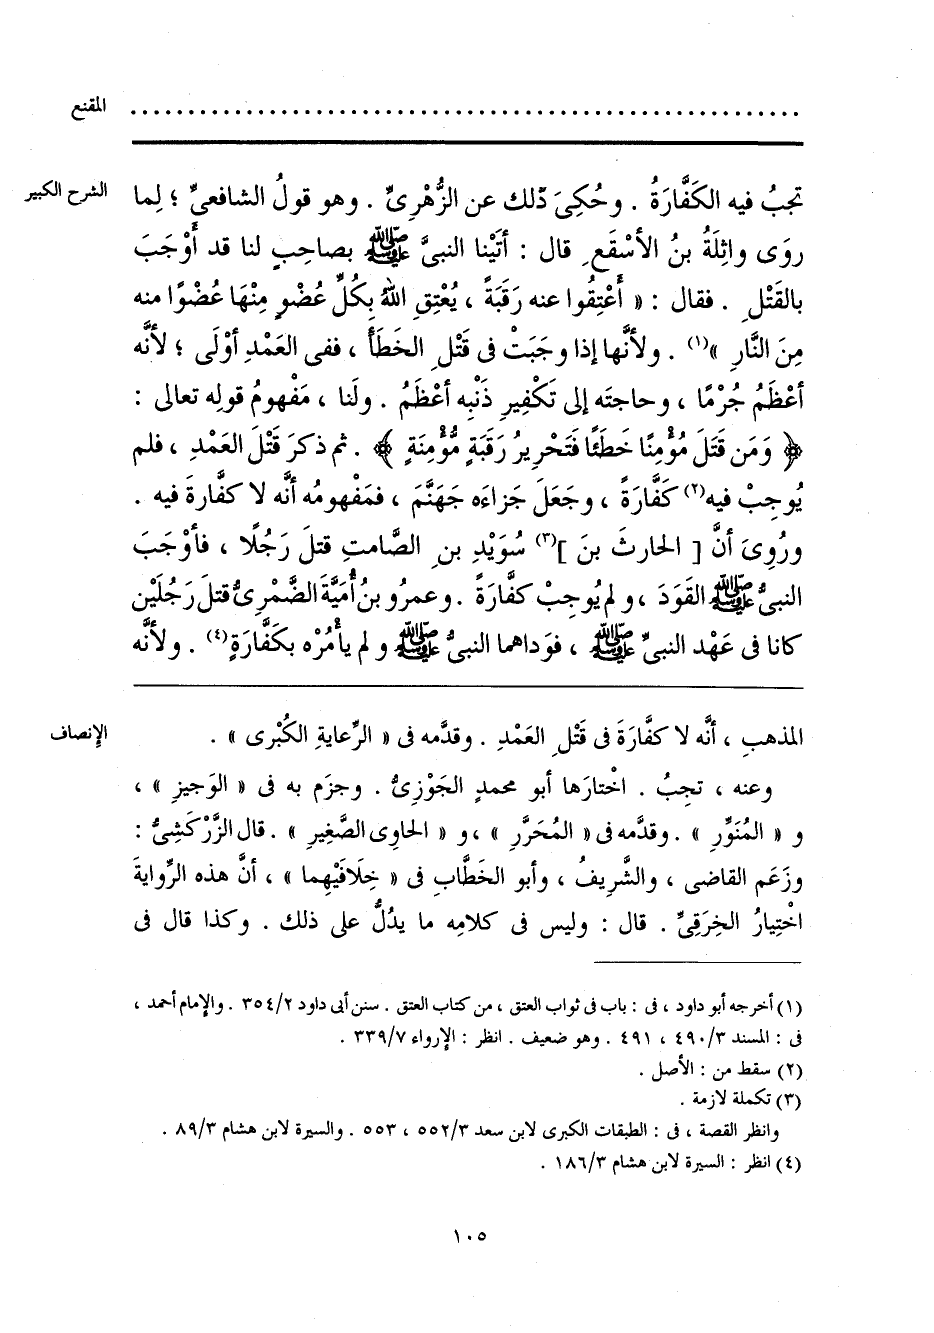 المقنع ............................................................
الشرح الكبير
تجبُ فيه الكَفَّارَةُ . وحُكِىَ ذَلك عن الزُّهْرِىِّ . وهو قولُ الشافعىِّ ؛ لِما
روَى واثِلَةُ بنُ الأسْقَعِ قال : أتَيْنا النبىَّ ﷺ بصاحِبٍ لنا قد أَوْجَبَ
بالقَتْلِ . فقال : « أَعْتِقُوا عنه رَقَبَةً ، يُعْتِقِ اللهُ بِكُلِّ عُضْوٍ مِنْهَا عُضْوًا منه
مِنَ النَّارِ »(١) . ولأنَّها إذا وجَبَتْ فى قَتْلِ الخَطَأ ، ففى العَمْدِ أوْلَى ؛ لأنَّه
أعْظَمُ جُرْمًا ، وحاجتَه إلى تَكْفيرِ ذَنْبِه أعْظَمُ . ولَنا ، مَفْهومُ قولِه تعالى :
﴿ وَمَن قَتَلَ مُؤْمِنًا خَطَـًٔا فَتَحْرِيرُ رَقَبَةٍ مُّؤْمِنَةٍ ﴾ . ثم ذكرَ قَتْلَ العَمْدِ ، فلم
يُوجِبْ فيه(٢) كَفَّارَةً ، وجَعَلَ جَزاءَه جَهَنَّمَ ، فمَفْهومُه أنَّه لا كفَّارةَ فيه .
ورُوِىَ أنَّ [ الحارثَ بنَ ](٣) سُوَيْدِ بنِ الصَّامتِ قتلَ رَجُلًا ، فأوْجَبَ
النبىُّ ﷺ القَوَدَ ، ولم يُوجِبْ كفَّارَةً . وعمرُو بنُ أُمَيَّةَ الضَّمْرِىُّ قتلَ رَجُلَيْن
كانا فى عَهْد النبىِّ ﷺ ، فوَداهما النبىُّ ﷺ ولم يأْمُرْه بكَفَّارَةٍ(٤) . ولأنَّه
الإنصاف
المذهبِ ، أنَّه لا كفَّارَةَ فى قَتْلِ العَمْدِ . وقدَّمه فى « الرِّعايةِ الكُبْرى » .
وعنه ، تجبُ . اخْتارَها أبو محمدٍ الجَوْزِىُّ . وجزَم به فى « الوَجيزِ » ،
و « المُنَوِّرِ » . وقدَّمه فى « المُحَرَّرِ » ، و « الحاوِى الصَّغِيرِ » . قال الزَّرْكَشِىُّ :
وزَعَم القاضى ، والشَّريفُ ، وأبو الخَطَّابِ فى « خِلَافَيْهِما » ، أنَّ هذه الرِّوايةَ
اخْتِيارُ الخِرَقِىِّ . قال : وليس فى كلامِه ما يدُلُّ على ذلك . وكذا قال فى
(١) أخرجه أبو داود ، فى : باب فى ثواب العتق ، من كتاب العتق . سنن أبى داود ٣٥٤/٢ . والإمام أحمد ،
فى : المسند ٤٩٠/٣ ، ٤٩١ . وهو ضعيف . انظر : الإرواء ٣٣٩/٧ .
(٢) سقط من : الأصل .
(٣) تكملة لازمة .
وانظر القصة ، فى : الطبقات الكبرى لابن سعد ٥٥٢/٣ ، ٥٥٣ . والسيرة لابن هشام ٨٩/٣ .
(٤) انظر : السيرة لابن هشام ١٨٦/٣ .
١٠٥